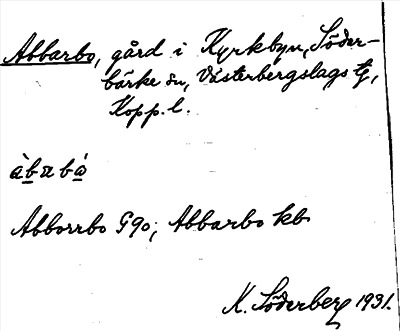 Abbarbo, gård i Kyrkbyn, Söder-
bärke sn, Västerbergslags tg,
Kopp. l.
àbabá
Abborrbo G90; Abbarbo kb
K. Söderberg 1931.